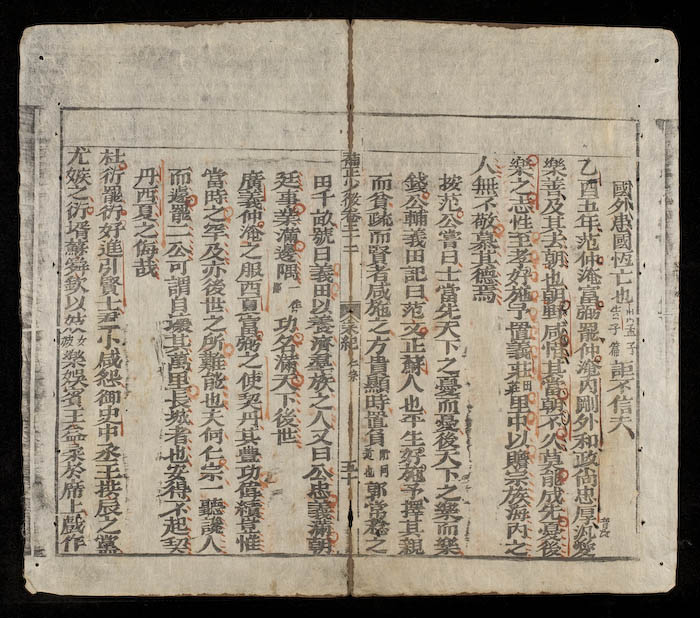 國外患國恆亡也出孟子告子篇詎不信夫
乙酉五年范仲淹富弼罷仲淹內剛外和政尚忠厚汎愛
樂善及其去朝也朝野咸惜其當朝不久莫能成先憂後
樂之志性至孝好施予置義莊田里中以贍宗族海內之
人無不敬慕其德焉
按范公嘗曰士當先天下之憂而憂後天下之樂而樂
錢公輔義田記曰范文正蘇人也平生好施予擇其親
而貧疏而賢者咸施之方貴顯時置負郭常稔之
田千畝號曰義田以養濟羣族之人又曰公忠義滿朝
廷事業滿邊隅功名滿天下後世
廣義仲淹之服西夏富弼之使契丹其豐功偉績豈惟
當時之罕及亦後世之所難能也夫何仁宗一聽讒人
而遽罷二公可謂自壞其萬里長城者也安得不起契
丹西夏之侮哉
杜衍罷衍好進引賢士小人咸怨御史中丞王拱辰之黨
尤嫉之衍壻蘇舜欽以妓女樂娛賓王益柔於席上戲作
宋紀
五十